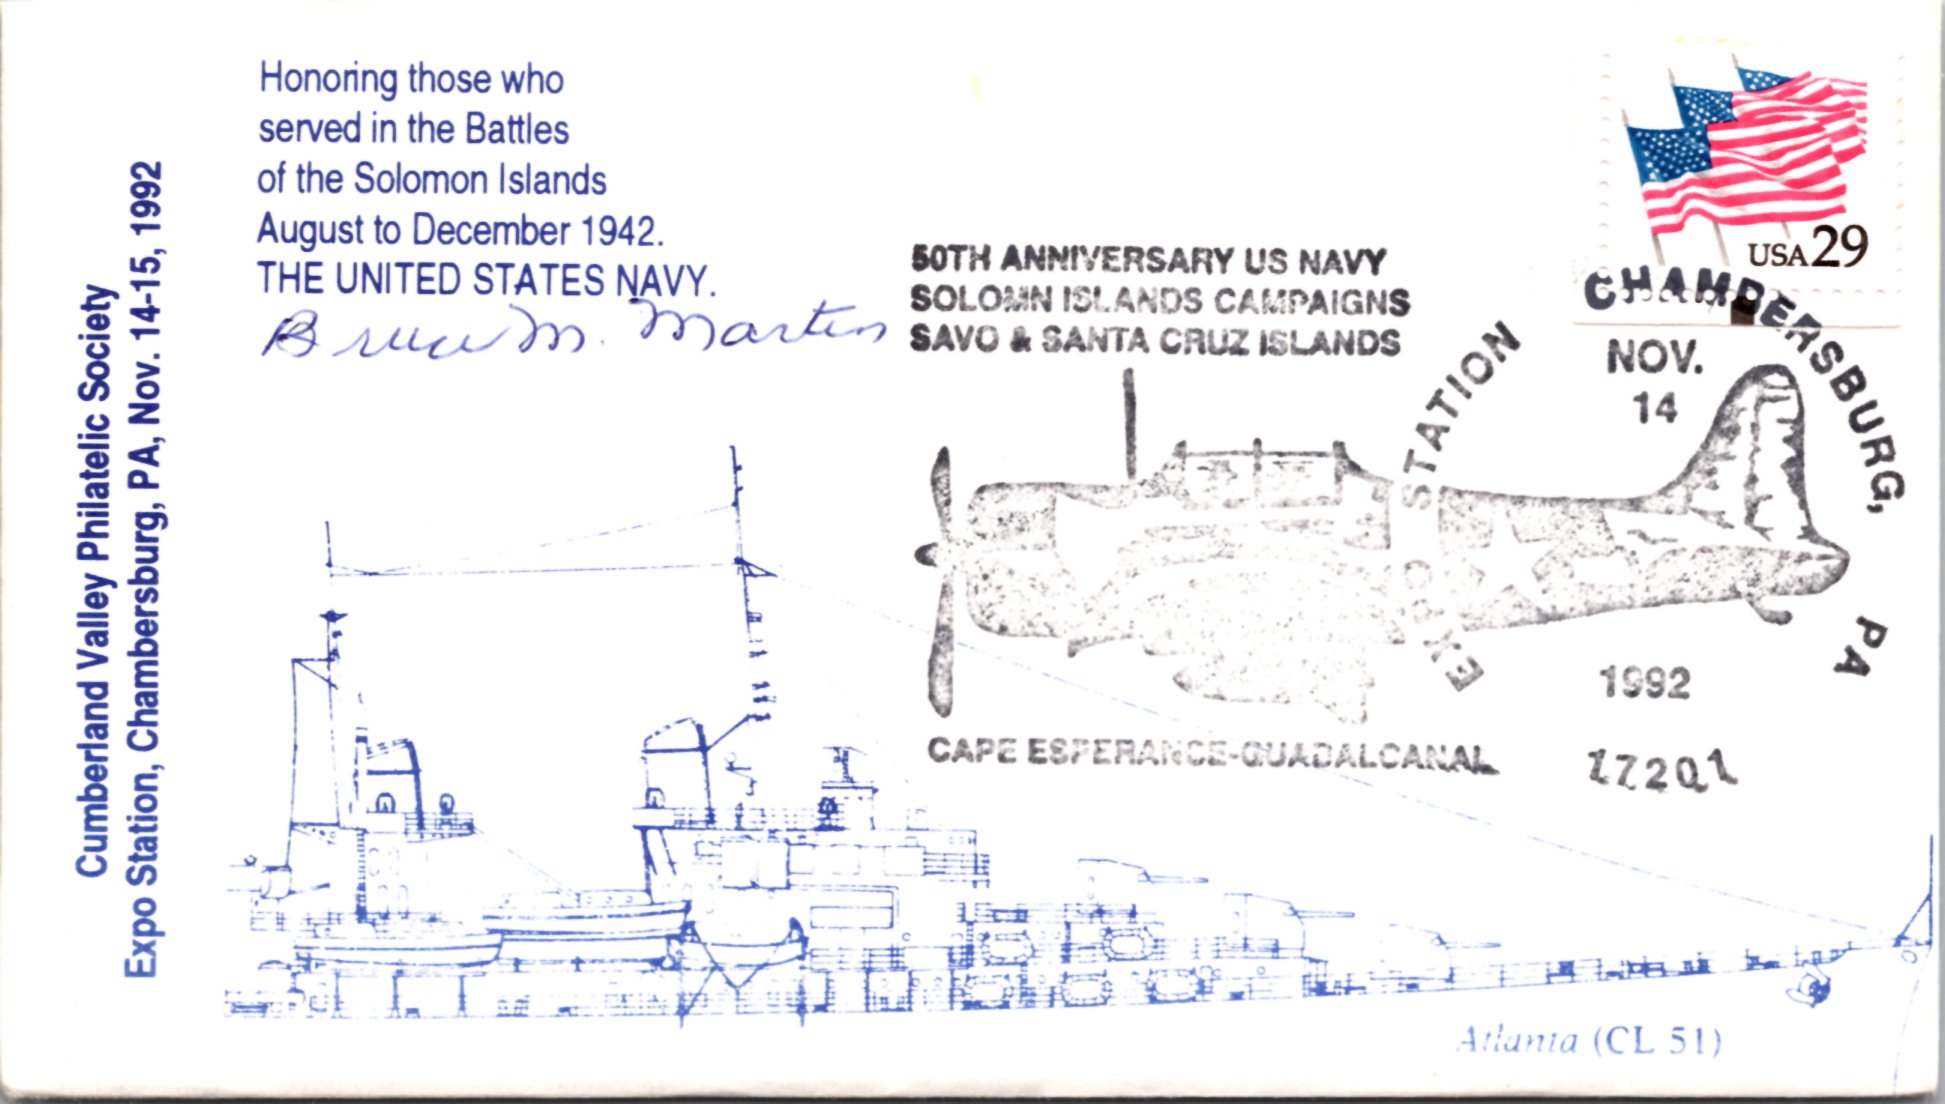 Cumberland Valley Philatelic Society
Expo Station, Chambersburg, PA, Nov. 14-15, 1992
Honoring those who
served in the Battles
of the Solomon Islands
August to December 1942.
THE UNITED STATES NAVY.
Bruce M. Martin
USA 29
50TH ANNIVERSARY US NAVY
SOLOMN ISLANDS CAMPAIGNS
SAVO & SANTA CRUZ ISLANDS
EXPO STATION
CHAMBERSBURG, PA
NOV.
14
1992
17201
CAPE ESPERANCE-GUADALCANAL
Atlanta (CL 51)